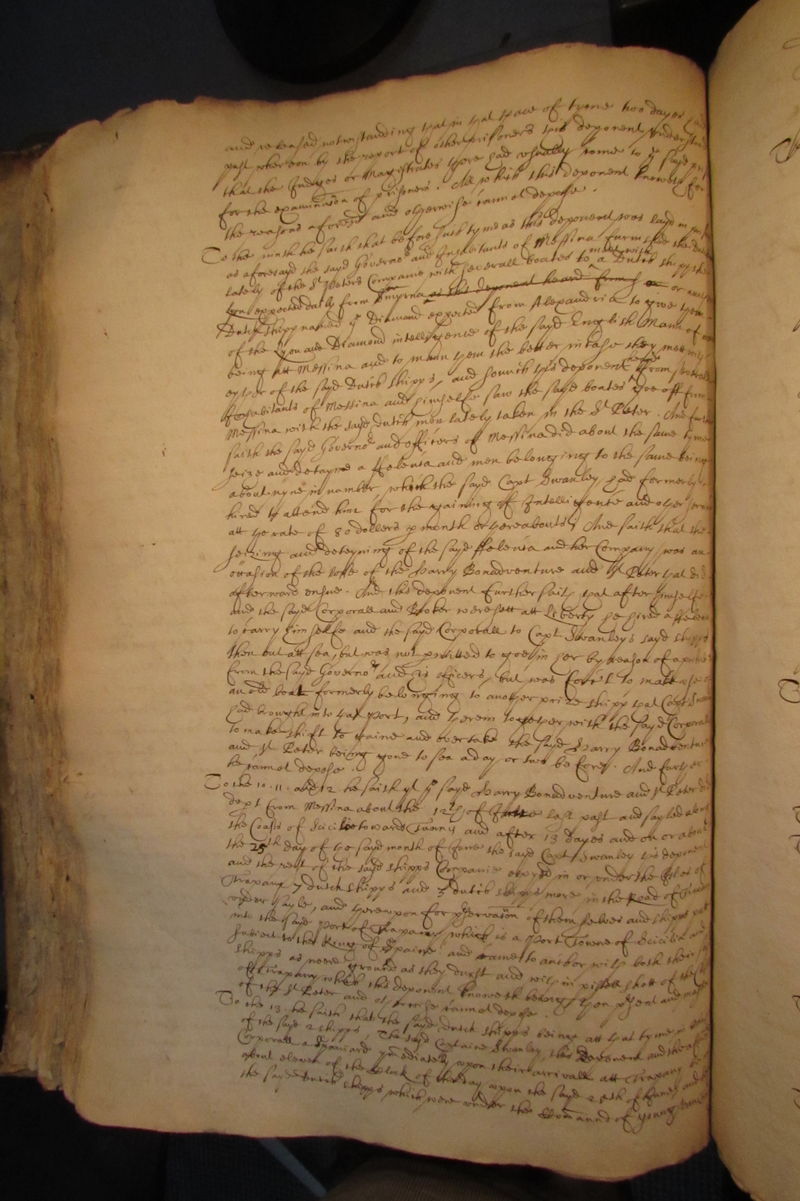 and released notwithstanding that in that space of tyme two dayes
past when on by the report of other prisoners this deponent
that the Judges or Magistrates there had usually come to ye sayd
for the examination of prisoners. All which this deponent knoweth for
the reasons aforesd and otherwise cannot depose.
To the ninth he saith that before such tyme as this deponent was layd in
as aforesayd the sayd Governor and Inhabitants of Messina furnished the
lately of the St Peters Companie with severall boates to a Dutch shipp the
Lyon expected dayly from Smyrna as this deponent heard from or
Dutch shipp named ye Diamond expected from Alexandria to give them
of the Lyon and Diamond intelligence of the sayd English Mann of
being att Messina and to mann them the better in case they mett
eyther of the sayd Dutch shipps, and sowith this deponent from severall
Inhabitants of Messina and himselfe saw the sayd boates goe off from
Messina with the sayd dutch men lately taken in the St Peter. And further
saith the sayd Governor and officers of Messina did about the same tyme
seize and detayne a ffelucca and men belonging to the same being
about nyne in number, which the sayd Capt Swanley had formerly
hired to attend him for the gaining of Intelligence and other
att the rate of 80 dollers p month or thereabouts, And saith that the
seizing and deteyning of the sayd ffelucca and her Company was an
occasion of the losse of the Harry Bonadventure and St Peter that did
afterward ensue. And this deponent further saith that after himselfe
and the sayd Corporall and Broker were sett att liberty he hired a ffelucca
to carry himselfe and the sayd Corporall to Capt Swanleys sayd shipps
then out att sea, but was not permitted to goe in her by reason of
from the sayd Governor and his officers, but was forc't to make use of
an old boat formerly belonging to another prize shipp that Capt Swanley
had brought into that port, and therein together with the sayd Corporall
to make shift to gaine and overtake the sayd Harry Bonadventure
and St Peter being gone to sea a day or two before. And further
he cannot depose.
To the 10. 11. and 12 he saith yt ye sayd Harry Bonadventure and St Peter did
dept from Messina about the 12th of June last past and sayled about
the Coasts of Sicilie towards Tunnis and after 13 dayes and on or about
the 25th day of the sayd month of June the sayd Capt Swanley this deponent
and the rest of the sayd shipps Companie espyed in or under the Isles of
Trapany 7 dutch shipps and 3 dutch shipps more in the Road of
under sayle, and thereupon for preservation of themselves and shipps
into the sayd Port of Trapany, which is a Port Towne of Sicilia and
subiect to the King of Spaine and came to anchor with both their
shipps as neere ground as they durst and within pistoll shott of the
off Trapany which this deponent knoweth being then present and
of the St Peter and otherwise cannot depose.
To the 13. he saith that the sayd dutch shipps being att that tyme in
of the sayd 2 shipps, the sayd Captaine Swanley, this deponent and the
Corporall a Spaniard imediately upon their arrivall att Trapany
about eleven of the clock of the day upon the sayd 25th of June
the sayd dutch shipps which were under the Command of young